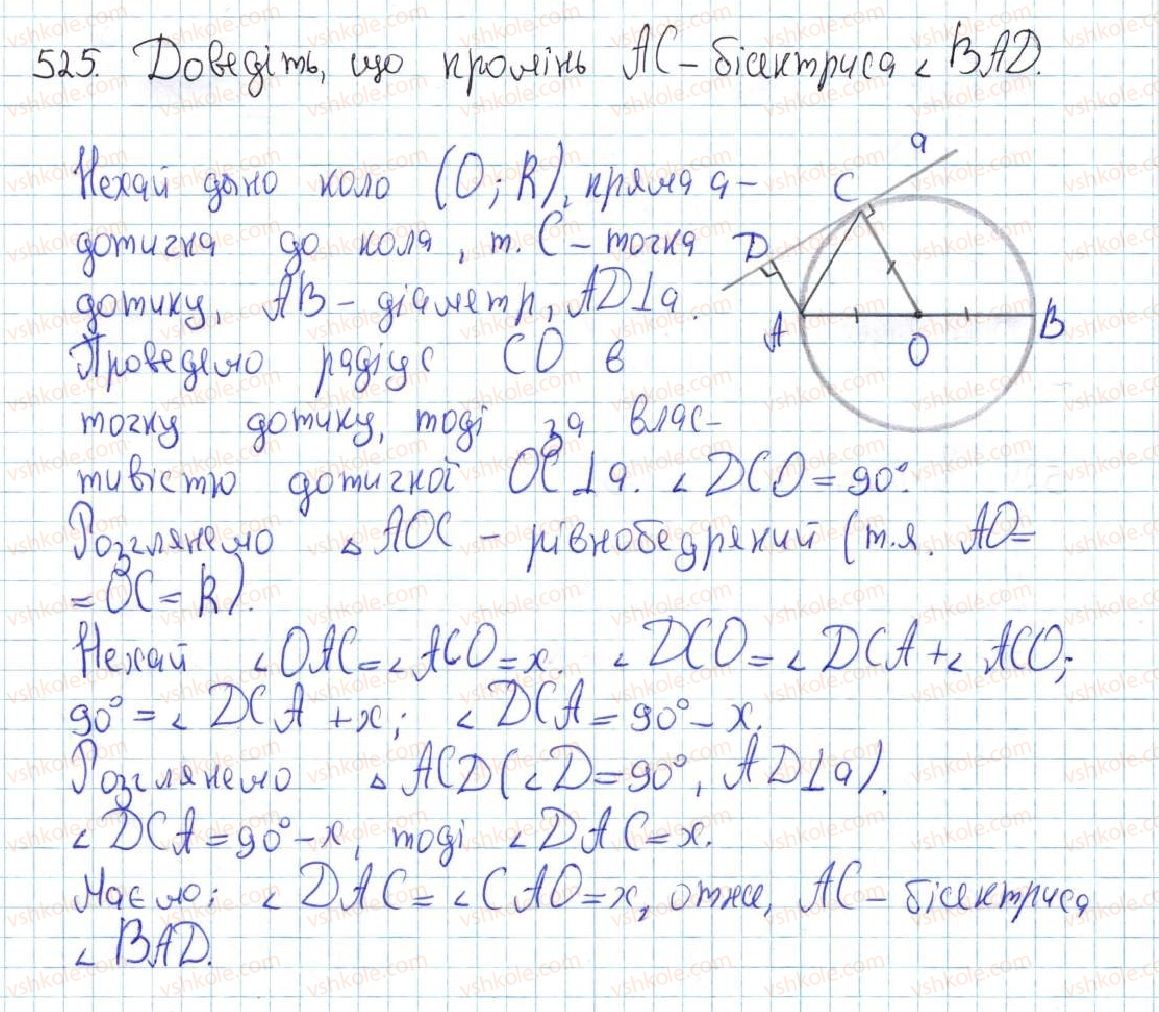 525. Доведіть, що промінь AC – бісектриса ∠ BAD.
Нехай дано коло (O; R), пряма a –
дотична до кола, т. C – точка
дотику, AB – діаметр, AD⊥a.
Проведемо радіус CO в
точку дотику, тоді за влас-
тивістю дотичної OC⊥a. ∠DCO = 90°.
Розглянемо △AOC – рівнобедрений (т.я. AO=
=OC=R).
Нехай ∠OAC=∠ACO=x. ∠DCO=∠DCA+∠ACO;
90°=∠DCA+x; ∠DCA=90°-x.
Розглянемо △ACD(∠D=90°, AD⊥a).
∠DCA=90°-x, тоді ∠DAC=x.
Маємо: ∠DAC=∠CAO=x, отже, AC – бісектриса
∠BAD.
a
C
D
A
O
B
vshkole.com